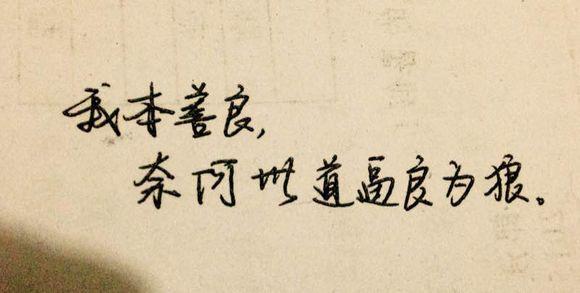 我本善良,
奈何世道逼良为狼。